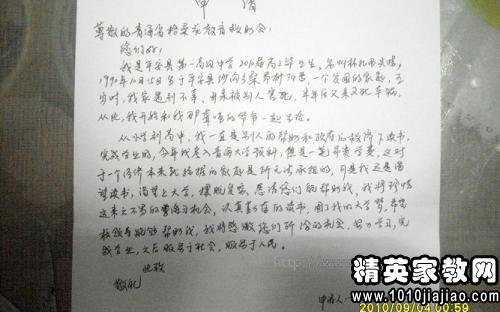 申 请
尊敬的青海省格桑花教育救助会:
您们好!
我是平安县第一高级中学2010届高三毕业生,名叫
1990年10月15日生于平安县沙沟乡桑昂村 一个贫困的家庭,
岁时,我家遭到不幸,母亲被别人害死,半年后父亲又死于车祸,
从此,我开始和我那 爷爷一起生活。
从小学到高中,我一直是别人的帮助和政府的救济下读书,
完成学业的,今年我考入青海大学预科,但是一笔昂贵学费,这对
于一个经济本来就拮据的家庭是所无法承担的,可是我还是渴
望读书,渴望上大学,摆脱贫穷,恳请您们能帮助我,我将珍惜
这来之不易的学习机会,认真勤奋的读书,圆了我的大学梦,希望
领导能够帮助我,我将感激您们所给的机会,努力学习,完
成学业,之后服务于社会,服务于人民。
此致
敬礼
申请人
http://
精英家教网
www.1010jiajiao.com
2010/09/04 00:59